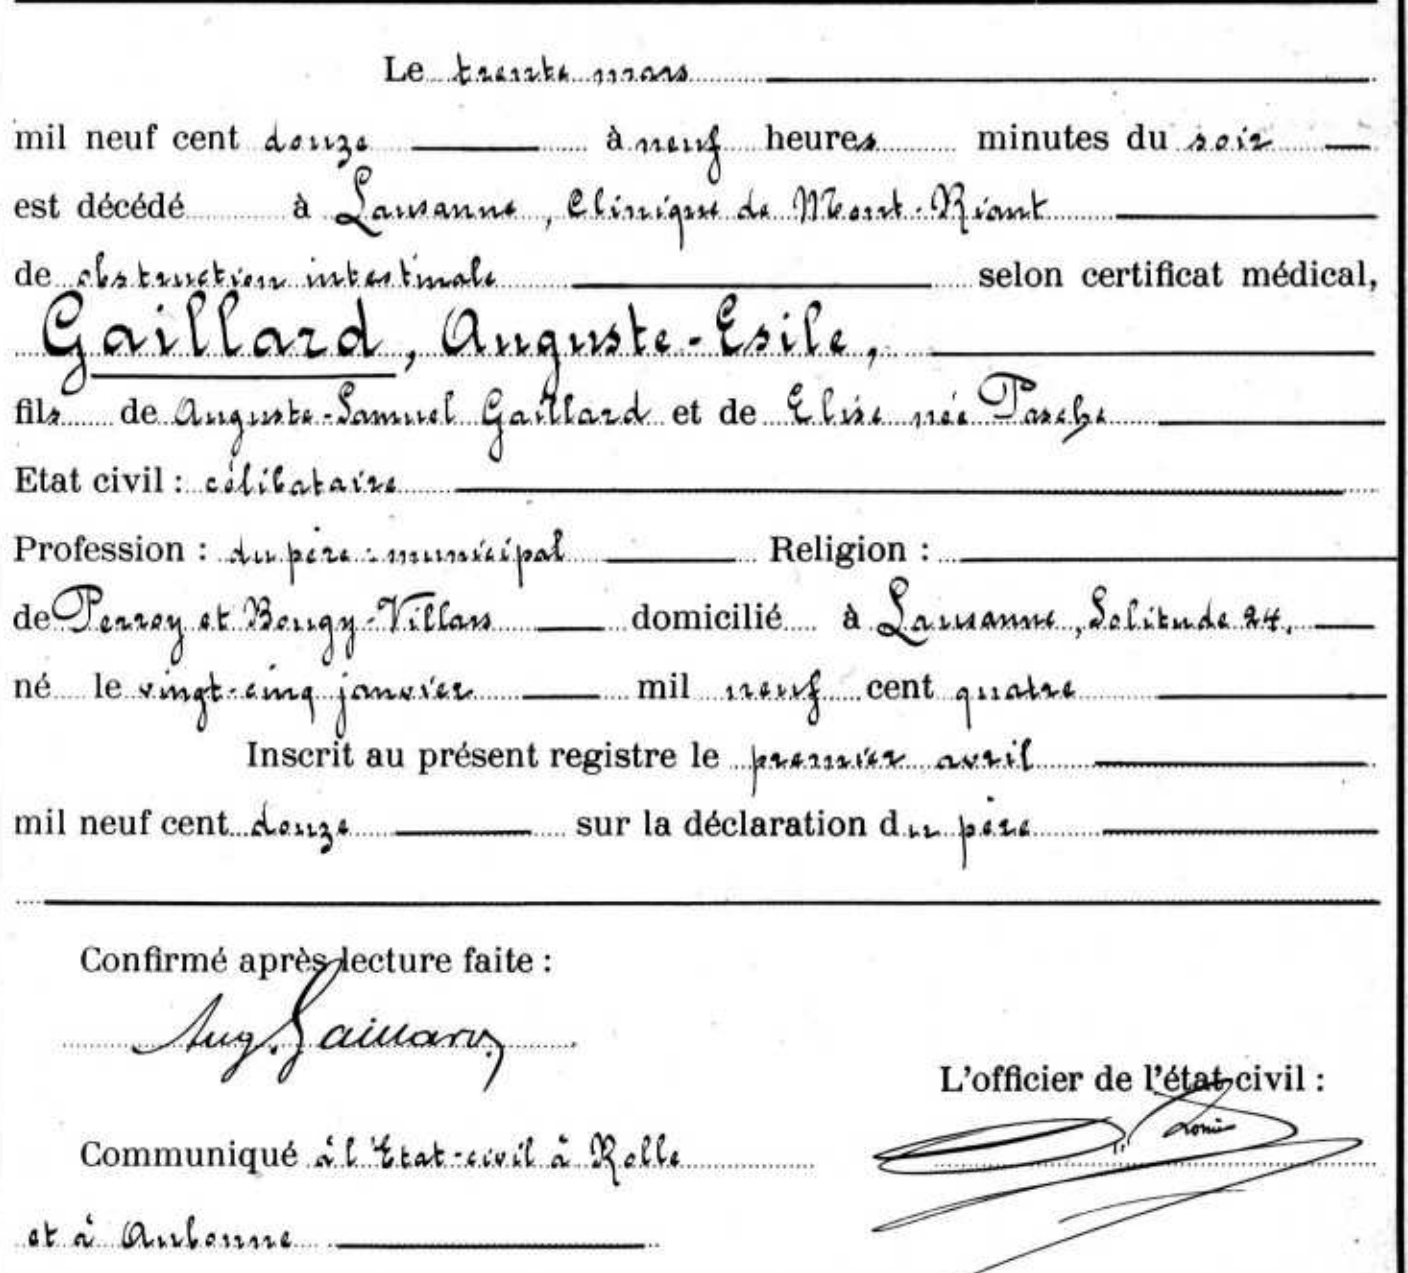 Le trente mars
mil neuf cent douze à neuf heures minutes du soir
est décédé à Lausanne, Clinique de Mont-Riant
de obstruction intestinale selon certificat médical,
Gaillard, Auguste-Esile,
fils de Auguste-Samuel Gaillard et de Elise née Pasche
Etat civil : célibataire
Profession : du père : municipal Religion :
de Perroy et Bougy-Villars domicilié à Lausanne, Solitude 24,
né le vingt-cinq janvier mil neuf cent quatre
Inscrit au présent registre le premier avril
mil neuf cent douze sur la déclaration du père
Confirmé après lecture faite :
Aug. Gaillard
L'officier de l'état-civil :
Communiqué à l'Etat-civil à Rolle
et à Aubonne